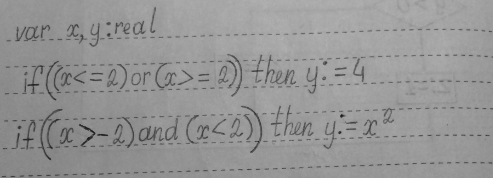 var x,y:real
if((x<=2)or(x>=2)) then y:=4
if((x>-2)and(x<2)) then y:=x²